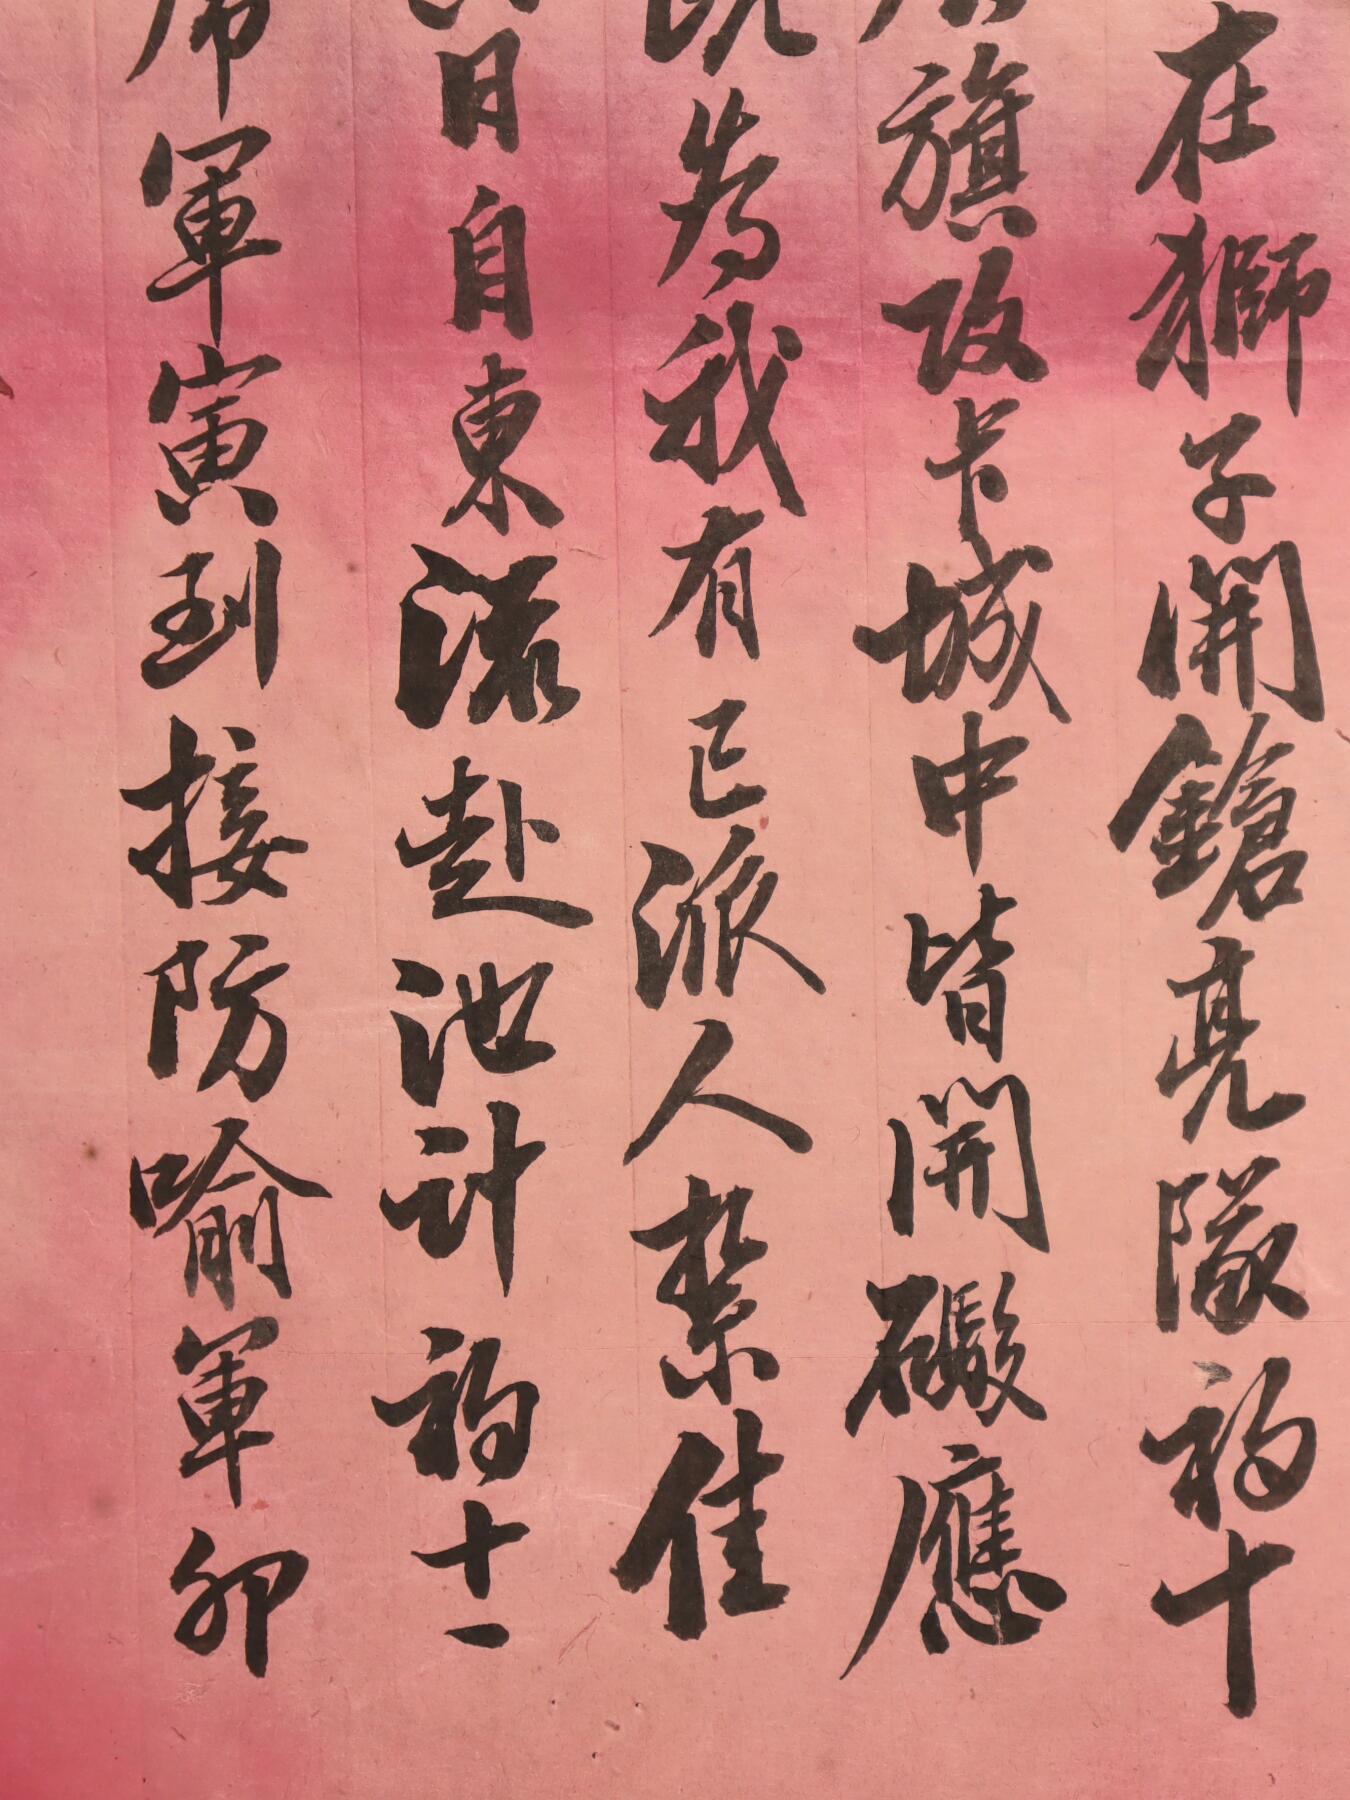 在獅子開鎗亮隊初十
旗改卡城中皆開礮應
為我有已派人紮住
日自東流赴池計初十一
席軍寅到接防喻軍卯